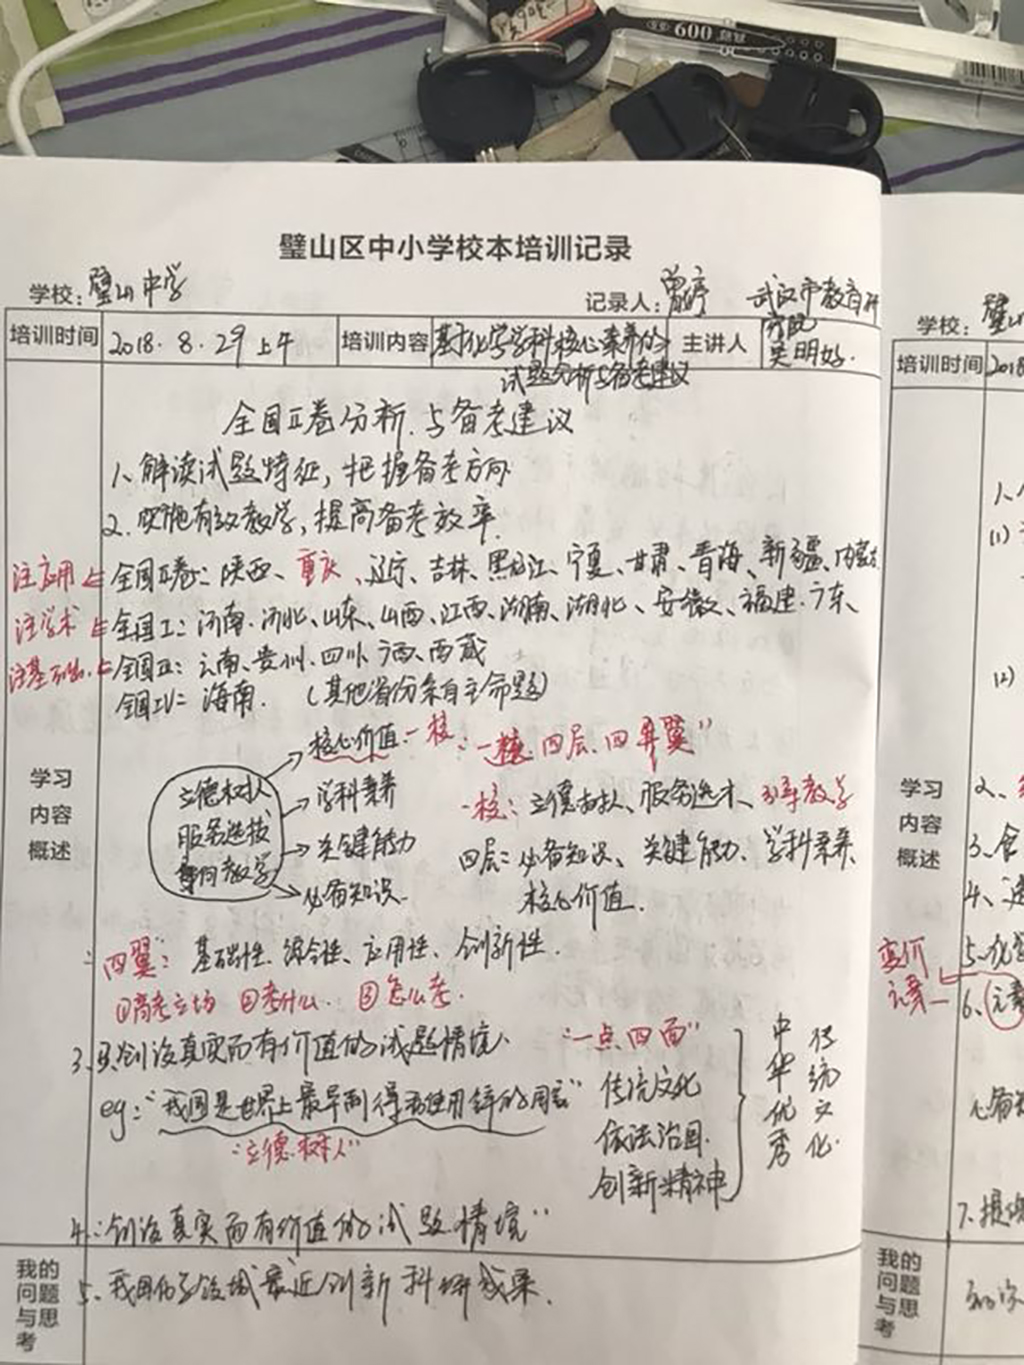 600
璧山区中小学校本培训记录
学校：璧山中学
记录人：曾婷
武汉市教育研究院
培训时间 2018.8.29上午 培训内容 基于化学学科核心素养的试题分析与备考建议 主讲人
全国Ⅱ卷分析与备考建议
1、解读试题特征，把握备考方向
2、实施有效教学，提高备考效率.
注应用 ⇐ 全国Ⅱ卷：陕西、重庆、辽宁、吉林、黑龙江、宁夏、甘肃、青海、新疆、内蒙古
注学术 ⇐ 全国Ⅰ：河南、河北、山东、山西、江西、湖南、湖北、安徽、福建、广东、
注基础 ⇐ 全国Ⅲ：云南、贵州、四川、广西、西藏
全国Ⅳ：海南. （其他省份亲自主命题）
学习内容概述
立德树人
服务选拔
导向教学
核心价值 一核
学科素养
关键能力
必备知识.
“一核、四层、四翼”
一核：立德树人、服务选才、引导教学
四层：必备知识、关键能力、学科素养、
核心价值.
四翼：基础性、综合性、应用性、创新性.
①高考立场 ②考什么. ③怎么考.
3、创设真实而有价值的试题情境、
eg：“我国是世界上最早制得和使用锌的国家”
“立德树人”
“一点四面”
传统文化
依法治国.
创新精神
中华优秀
传统文化.
4、“创设真实而有价值的试题情境”
我的问题与思考
5、我国化学领域最近创新科研成果.
学校：璧山
培训时间 2018
1、
(1)
(2)
学习内容概述
2、
3、
4、
5、
变价元素
6、元素
必备知
7、
我的问题与思考